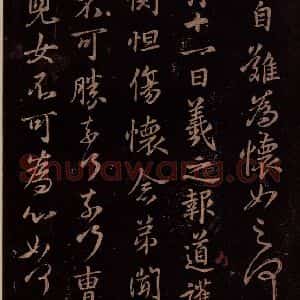 自難為懷如之何
月十一日羲之報道護
惻怛傷懷念弟聞
不可勝奈何奈何曹
兒女不可為心如何
Shufawang.CN